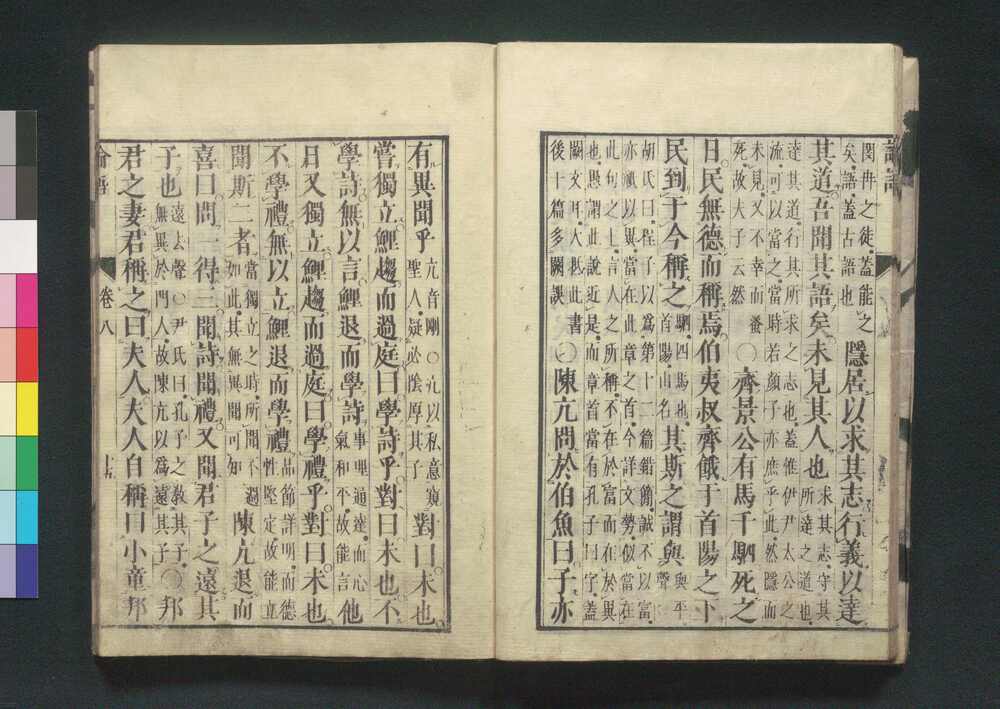 論語
閔冉之徒蓋能之
矣語蓋古語也
隱居以求其志行義以達
其道吾聞其語矣未見其人也
求其志守其
所達之道也
達其道行其所求之志也蓋惟伊尹太公之
流可以當之當時若顏子亦庶乎此然隱而
未見又不幸而蚤
死故夫子云然
○齊景公有馬千駟死之
日民無德而稱焉伯夷叔齊餓于首陽之下
民到于今稱之
駟四馬也
首陽山名
其斯之謂與
與平
聲
胡氏曰程子以爲第十二篇錯簡誠不以富
亦祗以異當在此章之首今詳文勢似當在
此句之上言人之所稱不在於富而在於異
也愚謂此說近是而章首當有孔子曰字蓋
闕文耳大抵此書
後十篇多闕誤
○陳亢問於伯魚曰子亦
有異聞乎
亢音剛○亢以私意窺
聖人疑必陰厚其子
對曰未也
嘗獨立鯉趨而過庭曰學詩乎對曰未也不
學詩無以言鯉退而學詩
事理通達而心
氣和平故能言
他
日又獨立鯉趨而過庭曰學禮乎對曰未也
不學禮無以立鯉退而學禮
品節詳明而德
性堅定故能立
聞斯二者
當獨立之時所聞不過
如此其無異聞可知
陳亢退而
喜曰問一得三聞詩聞禮又聞君子之遠其
子也
遠去聲○尹氏曰孔子之教其子
無異於門人故陳亢以爲遠其子
○邦
君之妻君稱之曰夫人夫人自稱曰小童邦
論語
卷八